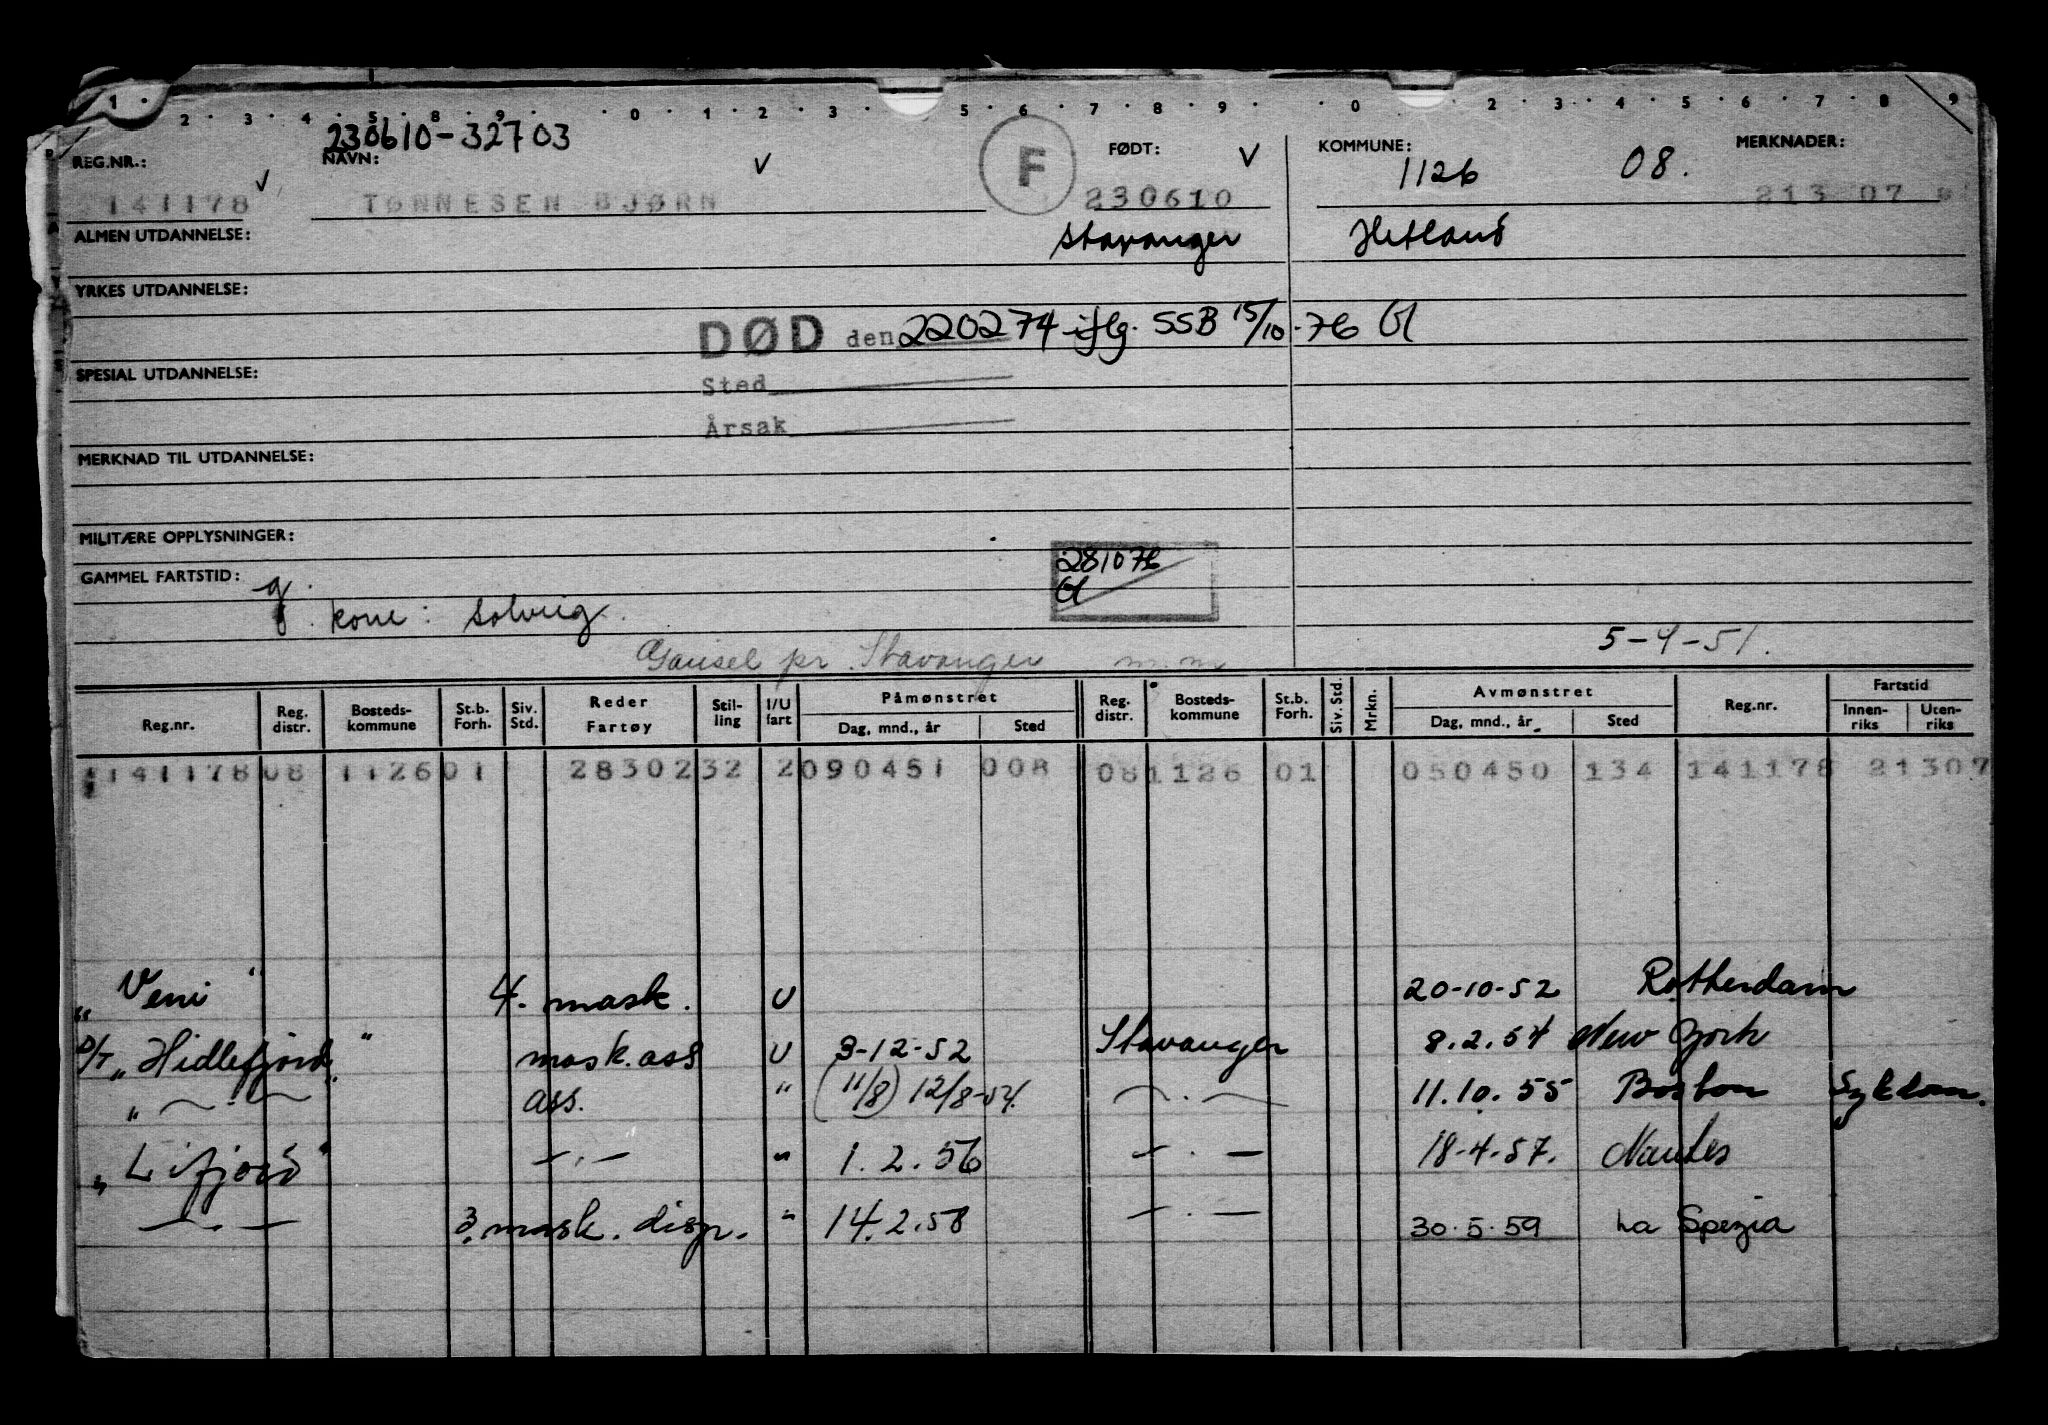 1 2 3 4 5 8 9 0 1 2 3 5 6 7 8 9 0 2 3 4 5 6 7 8 9
230610-32703
REG.NR.: NAVN: F FØDT: V KOMMUNE: 1126 08. MERKNADER:
141178 V TØNNESEN BJØRN V 230610 213 07
ALMEN UTDANNELSE: Stavanger Hetland
YRKES UTDANNELSE:
DØD den 220274 iflg. SSB 15/10-76
SPESIAL UTDANNELSE: Sted
Årsak
MERKNAD TIL UTDANNELSE:
MILITÆRE OPPLYSNINGER:
281076
GAMMEL FARTSTID: g.
kone: Solveig. 5-4-51.
Gausel pr. Stavanger m.m
Reg.nr. Reg. distr. Bosteds-kommune St.b. Forh. Siv. Std. Reder Fartøy Stil-ling I/U fart Påmønstret Dag, mnd., år Sted Reg. distr. Bosteds-kommune St.b. Forh. Siv. Std. Mrkn. Avmønstret Dag, mnd., år Sted Reg.nr. Fartstid Innen-riks Uten-riks
141178 08 1126 01 28302 32 2 090451 008 08 1126 01 050450 134 141178 21307
"Veni" 4. mask. U 20-10-52 Rotterdam
D/T "Hidlefjord" mask.ass U 3-12-52 Stavanger 8.2.54 New York
" — · — ass. " (11/8) 12/8-54. — · — 11.10.55 Boston Sykdom.
"Lifjord" — · — " 1.2.56 — · — 18-4-57. Nantes
— · — 3. mask. disp. " 14.2.58 — · — 30.5.59 La Spezia